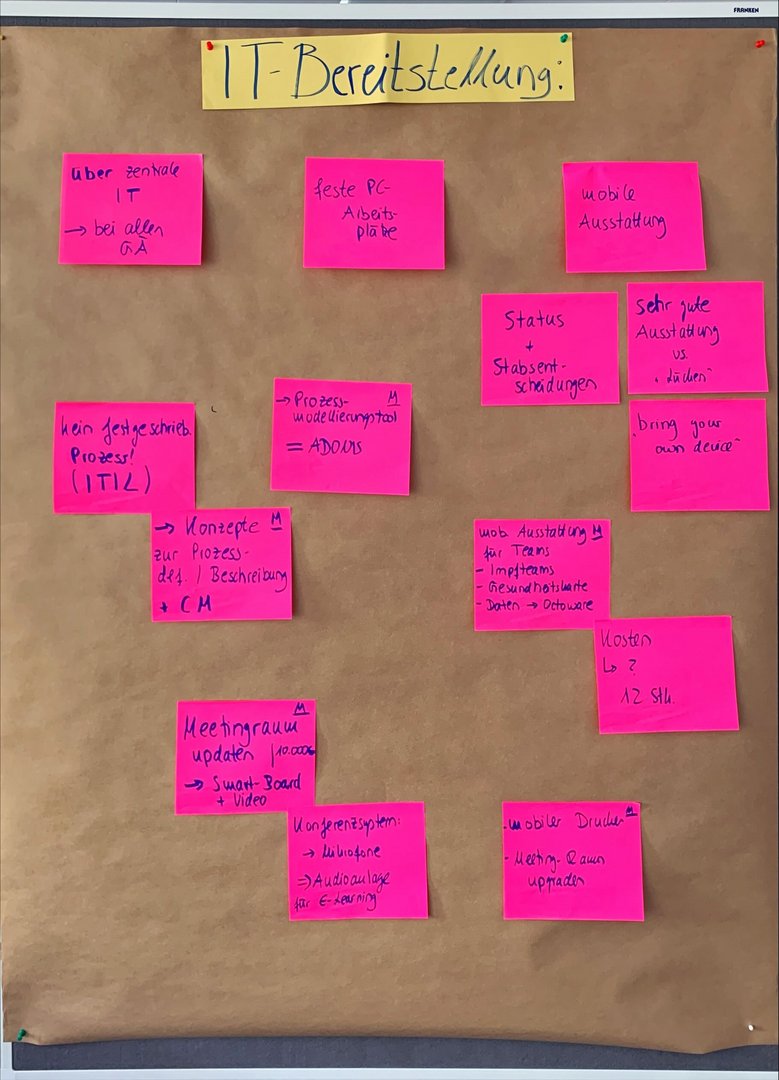 FRANKEN
IT-Bereitstellung:
über zentrale
IT
→ bei allen
GÄ
feste PC-
Arbeits-
plätze
mobile
Ausstattung
Status
+
Stabsent-
scheidungen
sehr gute
Ausstattung
vs.
"Lücken"
"bring your
own device"
kein festgeschrieb.
Prozess!
(ITIL)
→ Prozess- M
modellierungstool
= ADONIS
→ Konzepte M
zur Prozess-
def. / Beschreibung
+ CM
mob. Ausstattung M
für Teams
- Impfteams
- Gesundheitskarte
- Daten → Octoware
Kosten
↳ ?
12 Stk.
M
Meetingraum
updaten /10.000€
→ Smart-Board
+ Video
Konferenzsystem:
→ Mikrofone
⇒ Audioanlage
für E-Learning
- mobiler Drucker M
- Meeting-Raum
upgraden